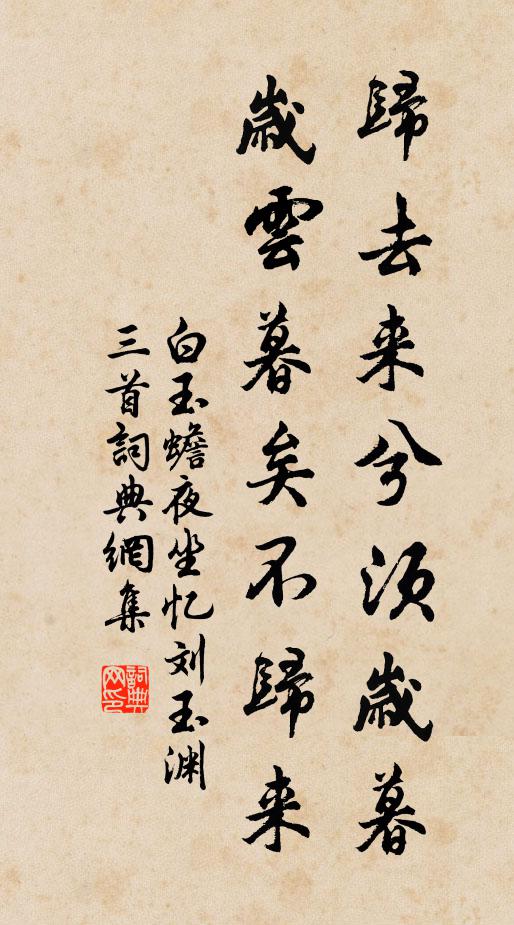 歸去来兮須歲暮
歲雲暮矣不歸来
白玉蟾夜坐忆刘玉渊
三首詞典網集
詞典网印